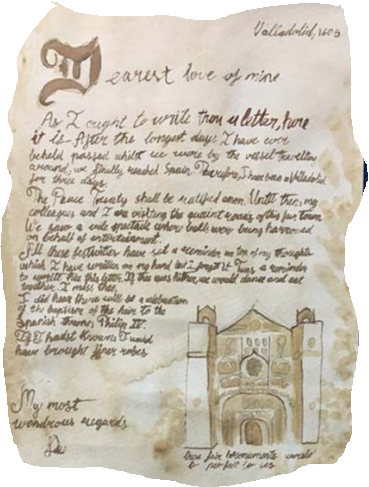 Valladolid, 1605
Dearest love of mine
As I ought to write thou a letter, here
it is. After the longest days I have ever
beheld passed whilst we were by the vessel travelling
around, we finally reached Spain. Therefore, I have been a Valladolid
for three days.
The Peace Treaty shall be ratified anon. Untill then, my
colleagues and I are visiting the quaint roads of this fair town.
We saw a vile spectacle where bulls were being harrowed
on behalf of entertainment.
All these festivities have set a reminder on top of my thoughts
which I have written on my hand but I forgot it. Thus, a reminder
to write thee this letter. If thou was hither, we would dance and eat
together. I miss thee.
I did hear there will be a celebration
of the baptism of the heir to the
Spanish throne, Philip IV.
If I hadst known I would
have brought finer robes
My most
wondrous regards
these fair monuments would
be perfect for us